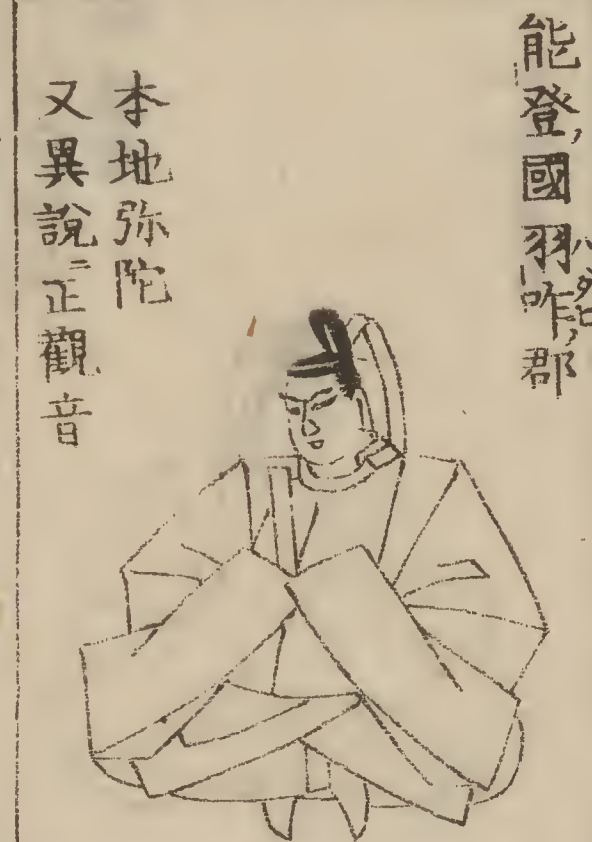 能登ノ國羽咋ノ郡
本地弥陀
又異說ニ正觀音